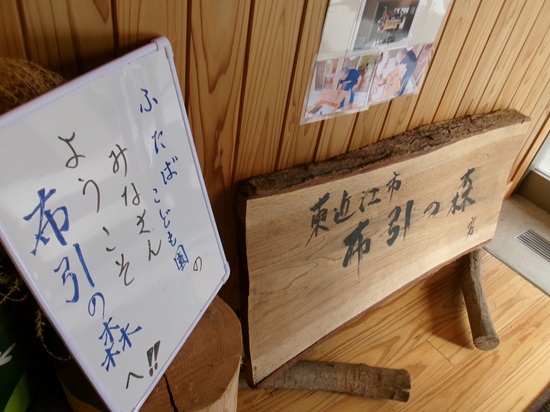 ふたばこども園の
みなさん
ようこそ
布引の森へ!!
東近江市
布引の森